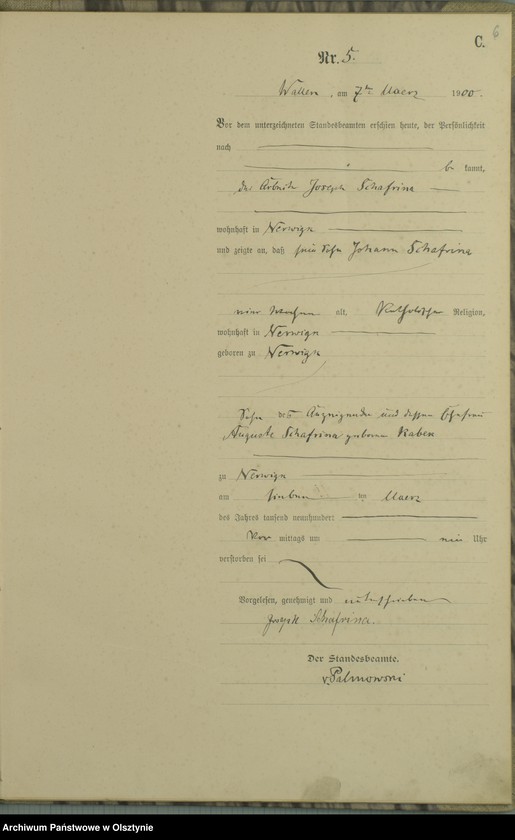 6
C.
Nr. 5.
Wallen, am 7ten Maerz 1900.
Vor dem unterzeichneten Standesbeamten erschien heute, der Persönlichkeit
nach
be kannt,
der Arbeiter Joseph Schafrina
wohnhaft in Nerwigk
und zeigte an, daß sein Sohn Johann Schafrina
Wochen alt, Katholischer Religion,
wohnhaft in Nerwigk
geboren zu Nerwigk
Sohn des Anzeigenden und dessen Ehefrau
Auguste Schafrina geborene Raben
zu Nerwigk
am sieben ten Maerz
des Jahres tausend neunhundert
Vor mittags um Uhr
verstorben sei
Vorgelesen, genehmigt und unterschrieben
Joseph Schafrina.
Der Standesbeamte.
v. Palmowski
Archiwum Państwowe w Olsztynie